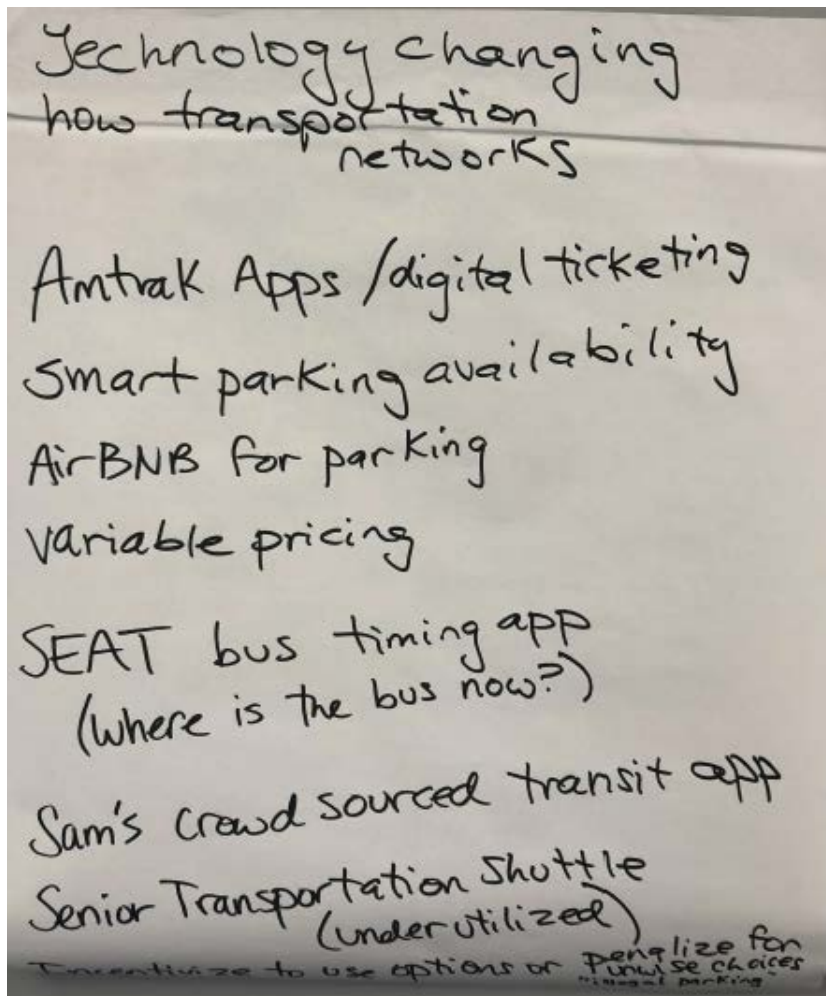 Technology changing
how transportation
networks
Amtrak Apps /digital ticketing
Smart parking availability
AirBNB for parking
variable pricing
SEAT bus timing app
(where is the bus now?)
Sam's crowd sourced transit app
Senior Transportation Shuttle
(under utilized)
Incentivize to use options or penalize for
unwise choices
"illegal parking"